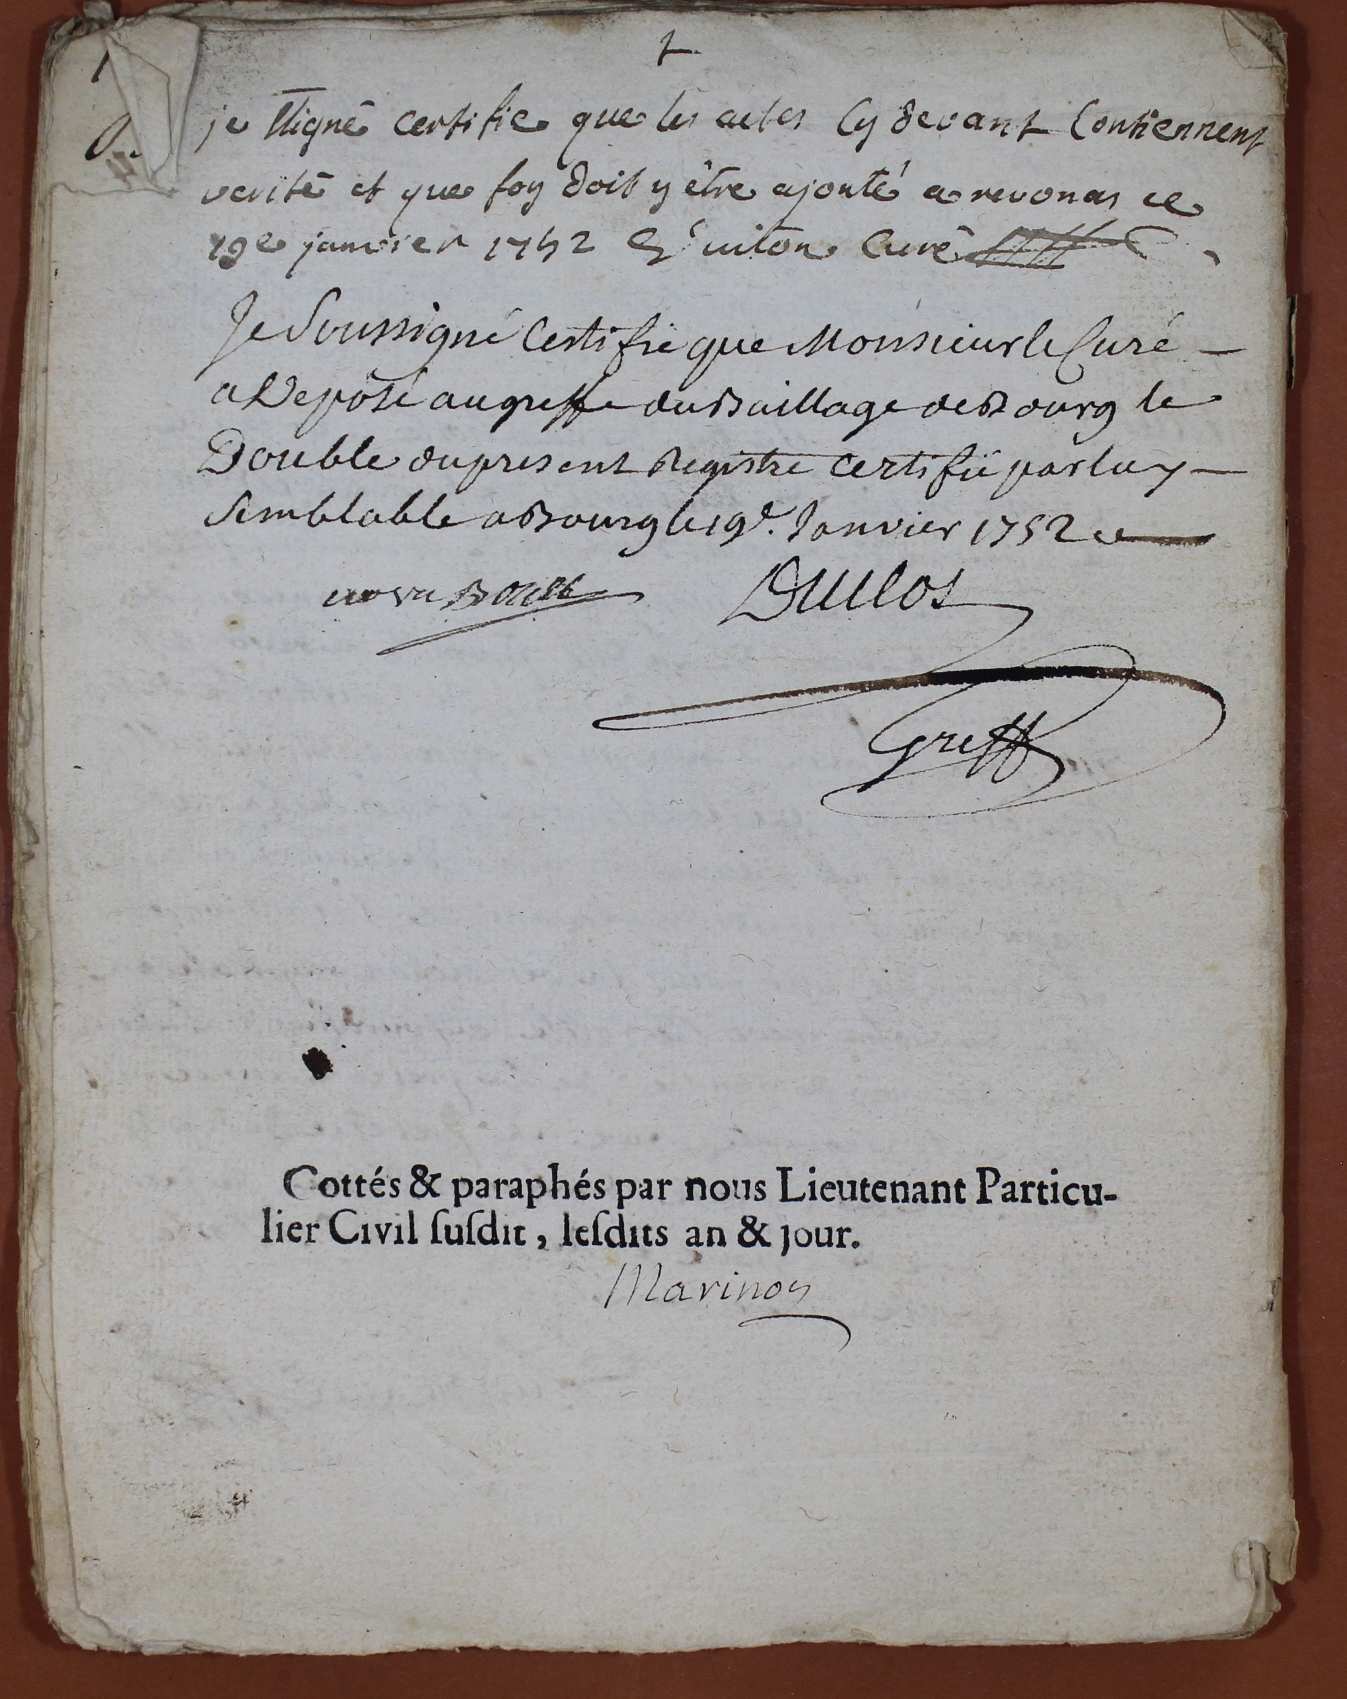 je ssigné certifie que les actes cy devant contiennent
verité et que foy doit y être ajouté a revonas ce
19e janvier 1752 curé
Je Soussigné Certifie que Monsieur le Curé
a Deposé au greffe du Baillage de Bourg le
Double du present Registre certifié par luy
Semblable a Bourg le 19e. Janvier 1752
Duclos
Greff
Cottés & paraphés par nous Lieutenant Particu-
lier Civil ſuſdit, leſdits an & jour.
Marinon